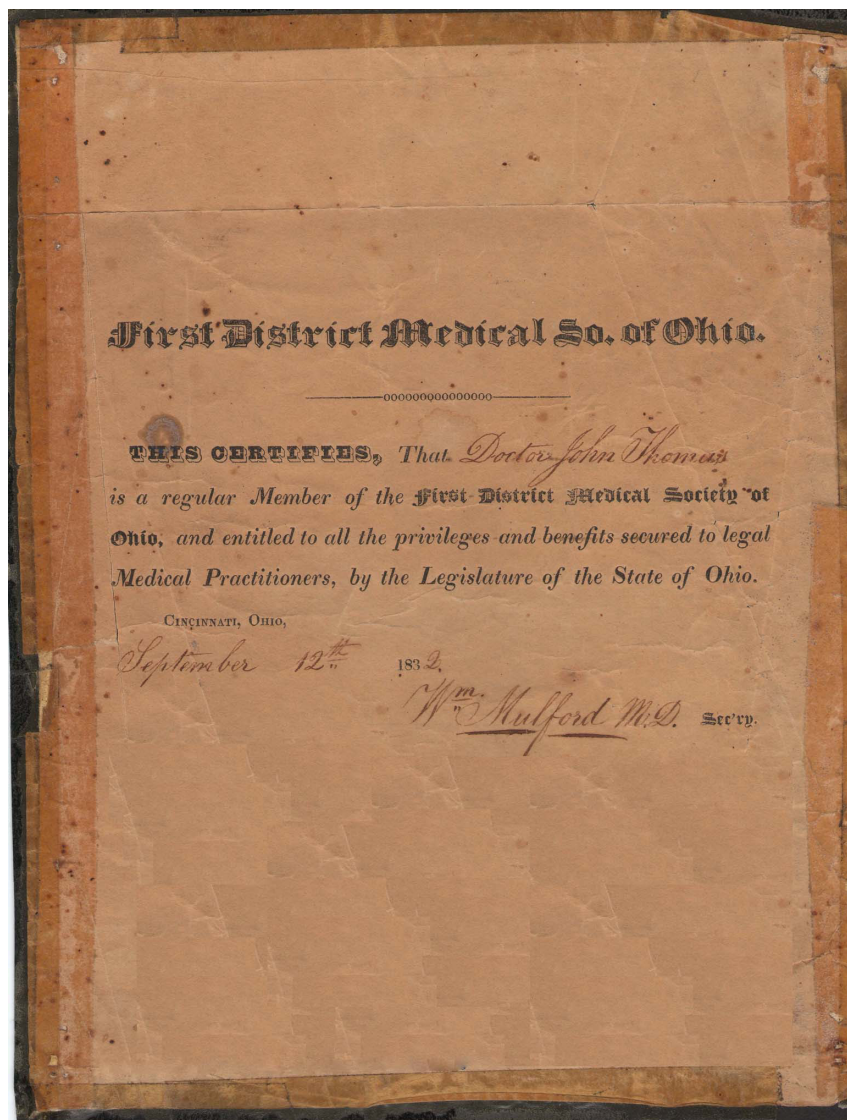 First District Medical So. of Ohio.
THIS CERTIFIES, That Doctor John Thomas
is a regular Member of the First District Medical Society of
Ohio, and entitled to all the privileges and benefits secured to legal
Medical Practitioners, by the Legislature of the State of Ohio.
Cincinnati, Ohio,
September 12th 1832.
Wm. Mulford M.D. Sec'ry.